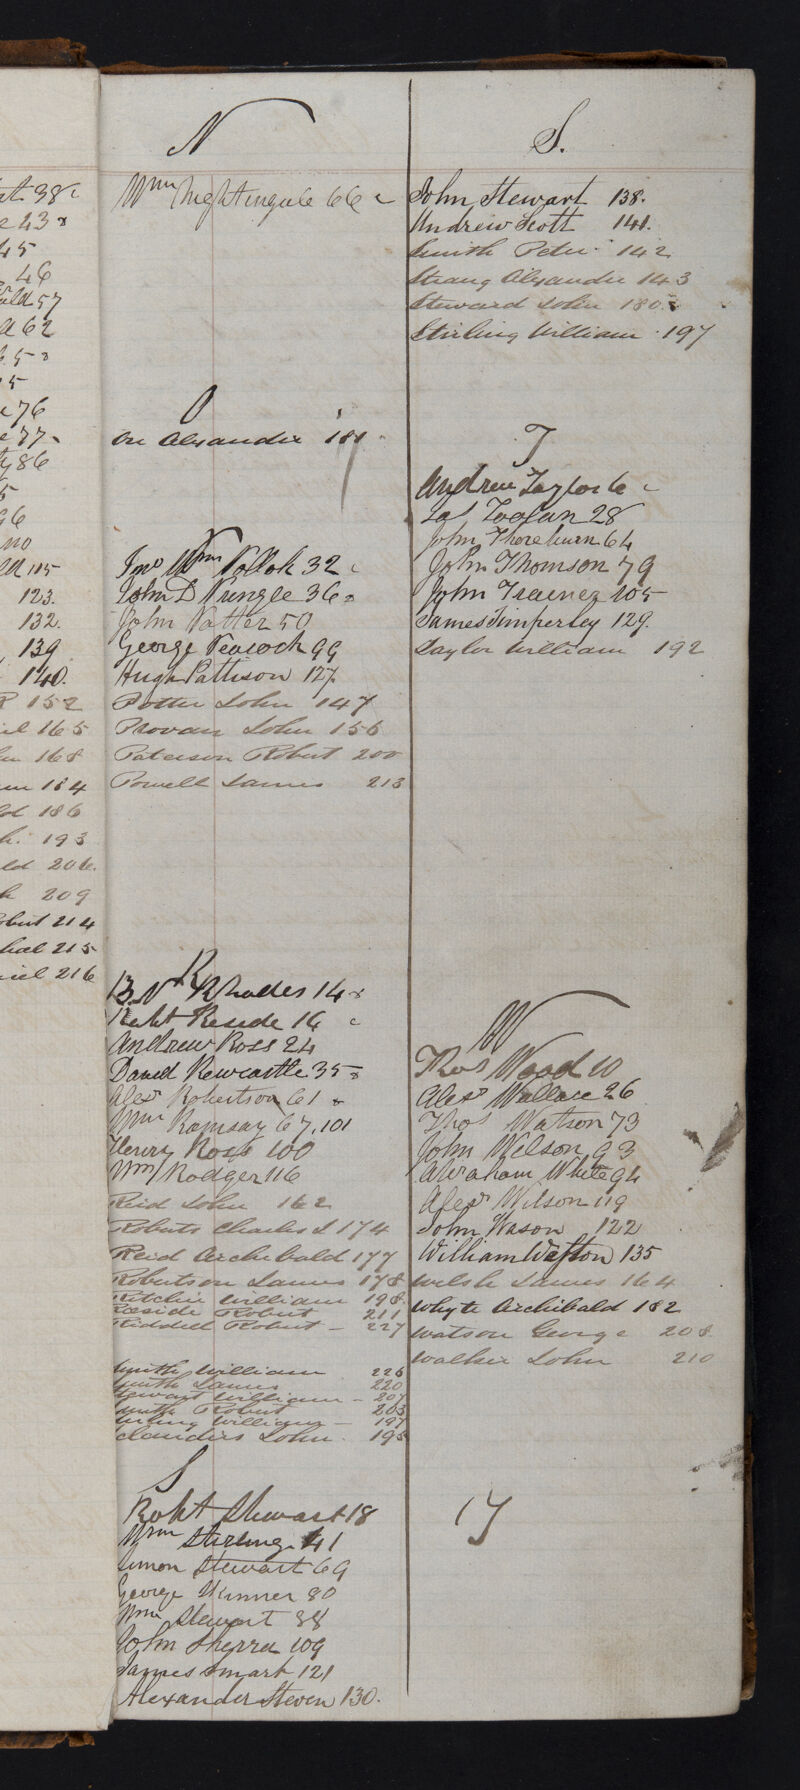 38
23
45
46
ald 57
62
5
5
76
77
86
5
96
110
ld 115
123.
132.
139
140.
152
165
168
184
186
193
206
209
obert 214
215
iel 216
N
Wm Nightingale 66
O
Orr Alexander 181
Jno Wm Pollok 32
John D Pringle 36
John Patter 50
George Peacock 99
Hugh Pattison 127
Potter John 147
Provan John 156
Paterson Robert 200
Powell James 213
R
B. N. Rhodes 14
Robt Reside 16
Andrew Ross 24
David Rewcastle 35
Alexr Robertson 61
Wm Ramsay 67, 101
Henry Ross 100
Wm Rodger 116
Reid John 162
Roberts Charles S 174
Reid Archibald 177
Robertson James 178
Ritchie William 198
Reside Robert 211
Riddell Robert - 227
Smith William 226
Smith James 220
Stewart William - 207
Smith Robert 203
Stirling William - 197
Saunders John 195
S
Robt Stewart 18
Wm Stirling 41
Simon Stewart 69
George Skinner 80
Wm Stewart 88
John Sherra 109
James Smart 121
Alexander Steven 130.
S.
John Stewart 138.
Andrew Scott 141.
Smith Peter 142
Strang Alexander 143
Steward John 180
Stirling William 197
T
Andrew Taylor 6
Jas 28
John Thoreburn 64
John Thomson 79
John Trainer 105
James Timperley 129.
Taylor William 192
W
Thos Wood 10
Alexr Wallace 26
Thos Watson 73
John Wilson 93
Abraham White 94
Alexr Wilson 119
John Wason 122
William Weston 135
Welsh James 164
Whyte Archibald 182
Watson George 208
Walker John 210
Y